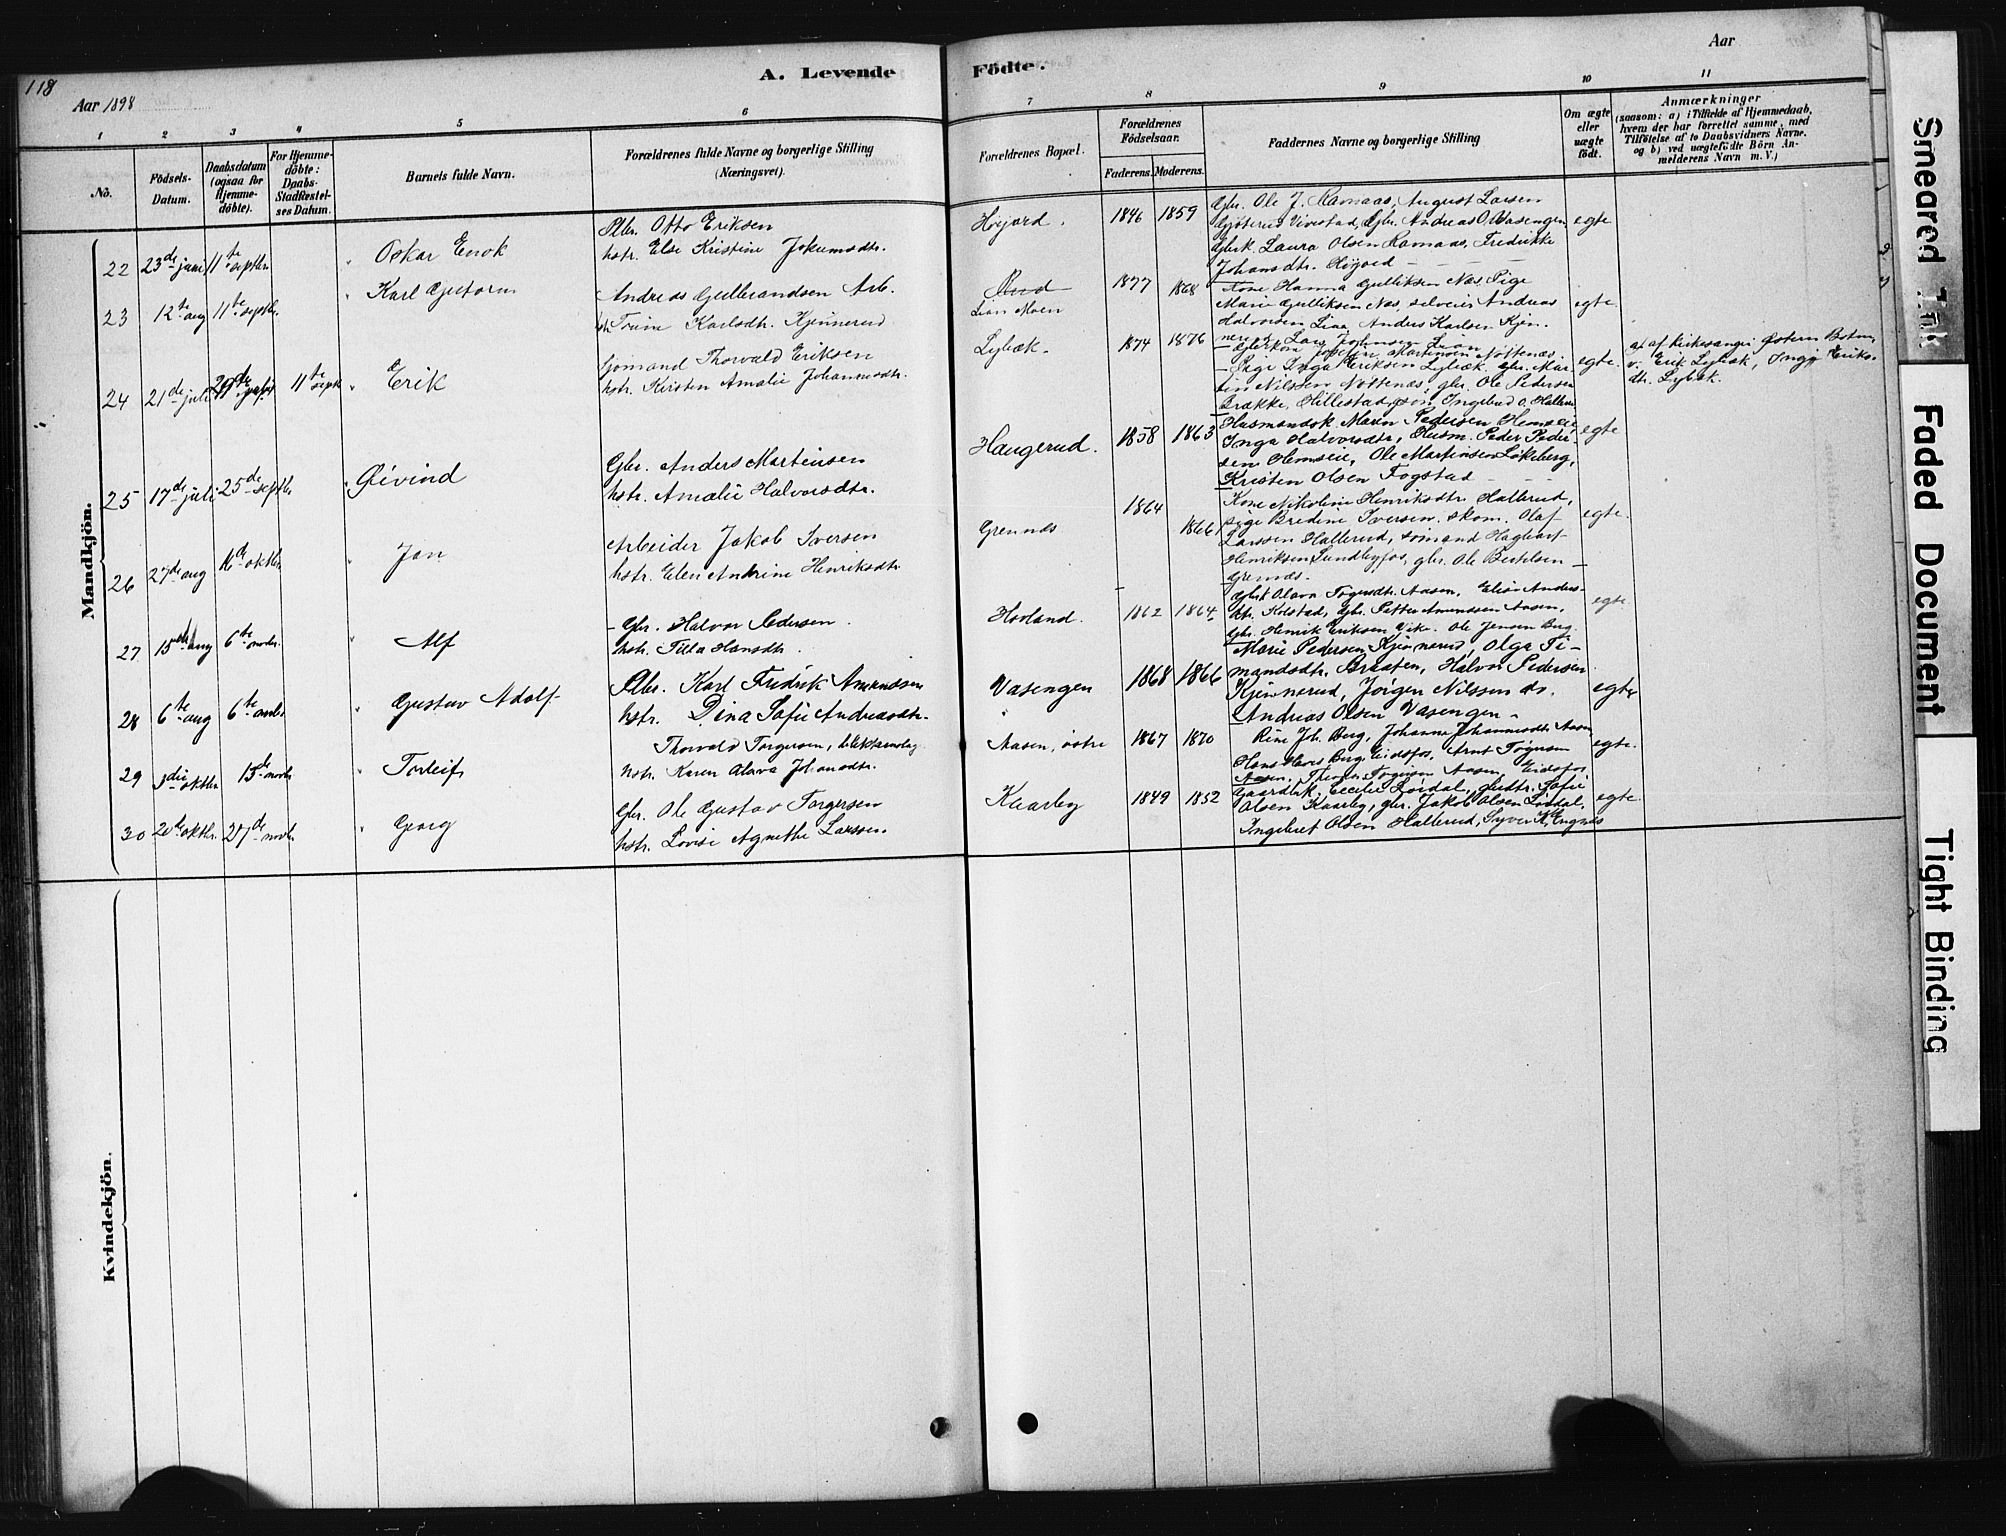 118
A. Levende Födte.
Aar
Aar 1898
1 2 3 4 5 6 7 8 9 10 11
No.
Födsels-
Datum.
Daabsdatum
(ogsaa for
Hjemme-
döbte).
For Hjemme-
döbte:
Daabs-
Stadfestel-
ses Datum.
Barnets fulde Navn.
Forældrenes fulde Navne og borgerlige Stilling
(Næringsvei).
Forældrenes Bopæl.
Forældrenes
Födselsaar.
Faderens. Moderens.
Faddernes Navne og borgerlige Stilling
Om ægte
eller
uægte
födt.
Anmærkninger
(saasom: a) i Tilfælde af Hjemmedaab,
hvem der har forrettet samme, med
Tilföielse af to Daabsvidners Navne.
og b) ved uægtefödte Börn An-
melderens Navn m. V.)
Mandkjön.
22 23de juni 11te septbr. Oskar Enok
Otto Eriksen
hstr. Else Kristine Jokumsdtr.
Høijord. 1846 1859
Gbr. Ole J. Ramaas, August Larsen
Vivestad, Gbr. Andreas O. Vasengen
Laura Olsen Ramaas, Fredrikke
Johansdtr. Høijord
egte
23 12te aug 11te septbr. Karl Gustav
Andreas Gulbrandsen Arb.
Karlsdtr. Kjønnerud
Lian Moen 1877 1868
Kone Hanna Gulliksen Næs, Pige
Marie Gulliksen Næs, selveier Andreas
Halvorsen Lian, Anders Karlsen Kjøn-
nerud, Lars Johansen Lian
egte.
24 21de juli 11te septbr. Erik
Sjømand Thorvald Eriksen
hstr. Kirsten Amalie Johannesdtr.
Lybæk. 1874 1876
Martinsen Nøttenæs,
Pige Inga Eriksen Lybæk, gbr. Mar-
tin Nilssen Nøttenæs, gbr. Ole Pedersen
Brække, Hillestad,
egte.
af kirkesanger Østern Botne,
v. Erik Lybæk, Inga Eriks-
dtr. Lybæk.
25 17de juli 25de septbr. Øivind
Gbr. Anders Martinsen
hstr. Amalie Halvorsdtr.
Haugerud. 1858 1863
Maren Pedersen Hemseie,
Inga Halvorsdtr., Husm. Peder Peder-
sen Hemseie, Ole Martinsen Løkeberg,
Kristen Olsen Fogstad
egte
26 27de aug oktbr. Jan
Arbeider Jakob Iversen
hstr. Elen Andrine Henriksdtr.
Grennes 1864 1866
Kone Nikoline Henriksdtr. Hallerud,
pige Bredine Iversen, Olaf
Larssen Hallerud, sømand Hagbart
Henriksen Sundbyfos, gbr. Ole Bertelsen
Grennes.
egte.
27 15de aug 6te novbr. Alf
Gbr. Halvor Pedersen
hstr. Tilla Hansdtr.
Hovland. 1862 1864
Olava Aasen, Elise Anders-
dtr. Kolstad, Gbr. Petter Amundsen Aasen,
Gbr. Henrik Eriksen Vike. Ole Jensen Berg.
egte
28 6te aug 6te Gustav Adolf
Karl Fredrik Amundsen
hstr. Dina Sofie Andreasdtr.
Vasengen 1868 1866
Marie Pedersen Kjønnerud, Olga Ti-
mandsdtr. Braaten, Halvor Pedersen
Kjønnerud, Jørgen Nilssen ds.
Andreas Olsen Vasengen
egte
29 3die oktbr 13de novbr. Torleif
Thorvald Torgersen,
hstr. Karen Olava Johansdtr.
Aasen, østre 1867 1870
Rine Joh. Berg, Johanne Johannesdtr. Aasen
Berg Eidsfos, Arnt
Aasen, Aasen, Eidsfos
egte.
30 20de oktbr. 27de novbr. Georg
Gbr. Ole Gustav Torgersen
hstr. Lovise Agnethe Larssen.
Kaarby 1849 1852
Cecilie Lørdal, Sofie
Olsen Kaarby, gbr. Jakob Olsen Lørdal,
Ingebret Olsen Hallerud, Syver K. Engnæs
egte
Kvindekjön.
Smeared Ink
Faded Document
Tight Binding